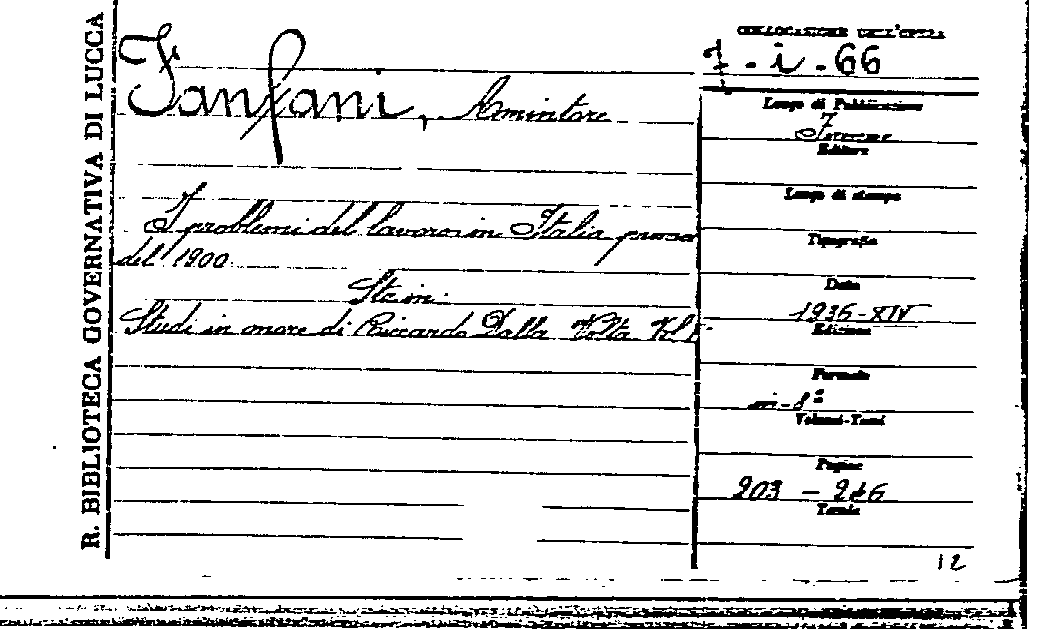 R. BIBLIOTECA GOVERNATIVA DI LUCCA
Fanfani, Amintore
I problemi del lavoro in Italia prima
del 1900
Sta in:
Studi in onore di Riccardo Dalla Volta Vol I.
COLLOCAZIONE DELL'OPERA
7 - i - 66
Luogo di Pubblicazione
Firenze
Editore
Luogo di stampa
Tipografia
Data
1936-XIV
Edizione
Formato
in-8°
Volumi-Tomi
Pagine
203 - 246
Tavole
12